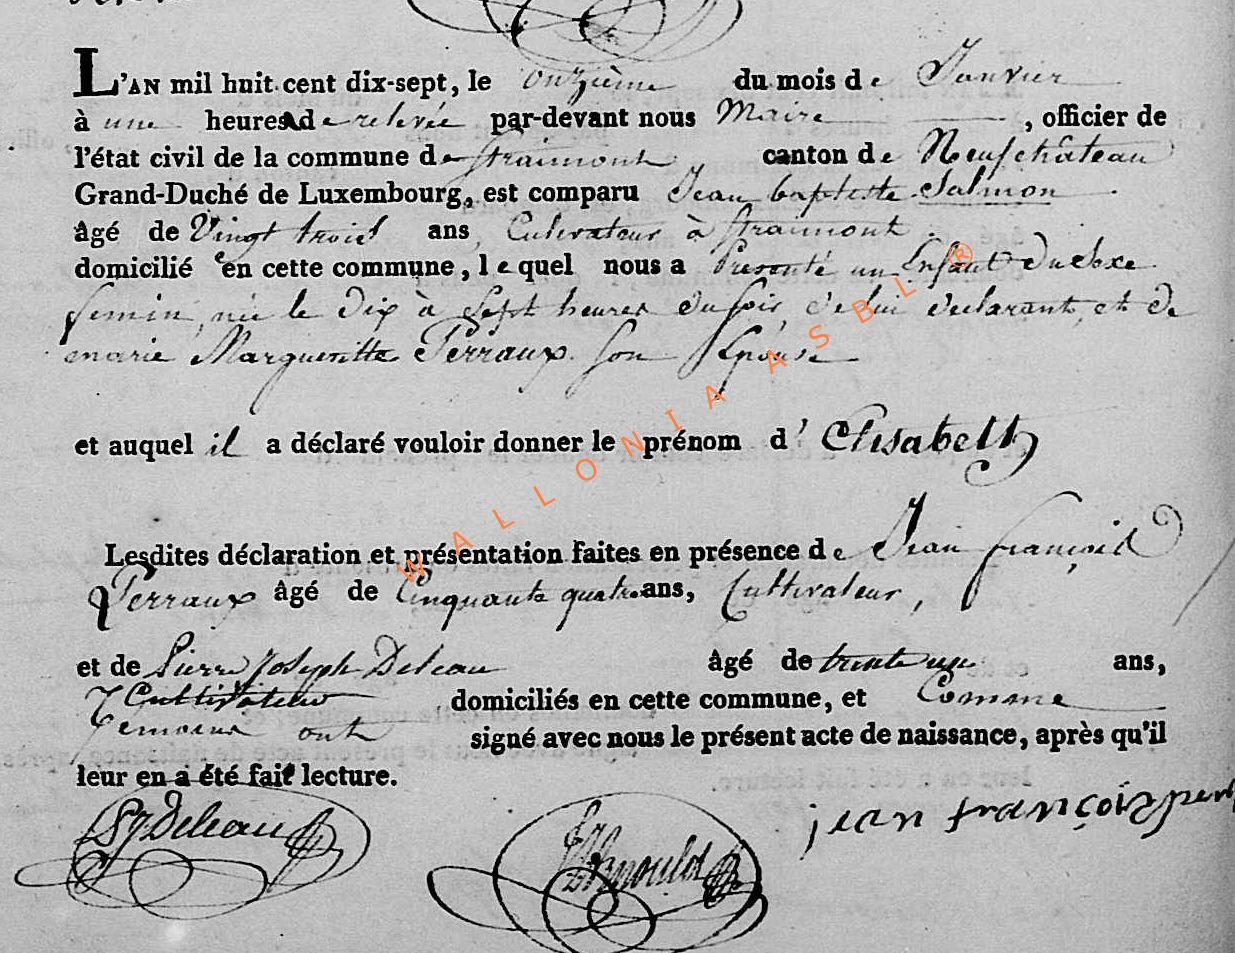 L'AN mil huit cent dix-sept, le onzième du mois de Janvier
à une heures de relevée par-devant nous Maire, officier de
l'état civil de la commune de Straimont canton de Neufchâteau
Grand-Duché de Luxembourg, est comparu Jean baptiste Salmon
âgé de Vingt trois ans, Cultivateur à Straimont.
domicilié en cette commune, lequel nous a Presenté un Enfant du Sexe
femin, née le dix à Sept heures du soir, de lui declarant, et de
marie Margueritte Perraux son Epouse
et auquel il a déclaré vouloir donner le prénom d' Elisabeth
Lesdites déclaration et présentation faites en présence de Jean françois
Perraux âgé de Cinquante quatre ans, Cultivateur,
et de Pierre Joseph Deleau âgé de trente un ans,
Cultivateur domiciliés en cette commune, et Comme
Temoins ont signé avec nous le présent acte de naissance, après qu'il
leur en a été fait lecture.
Deleau
jean françois
WALLONIA ASBL ®